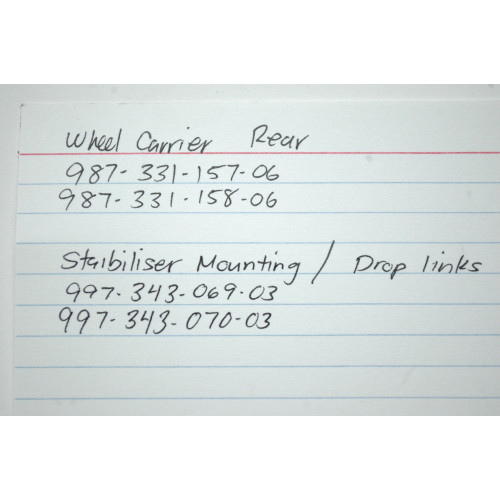 Wheel Carrier Rear
987-331-157-06
987-331-158-06
Staibiliser Mounting / Drop links
997-343-069-03
997-343-070-03